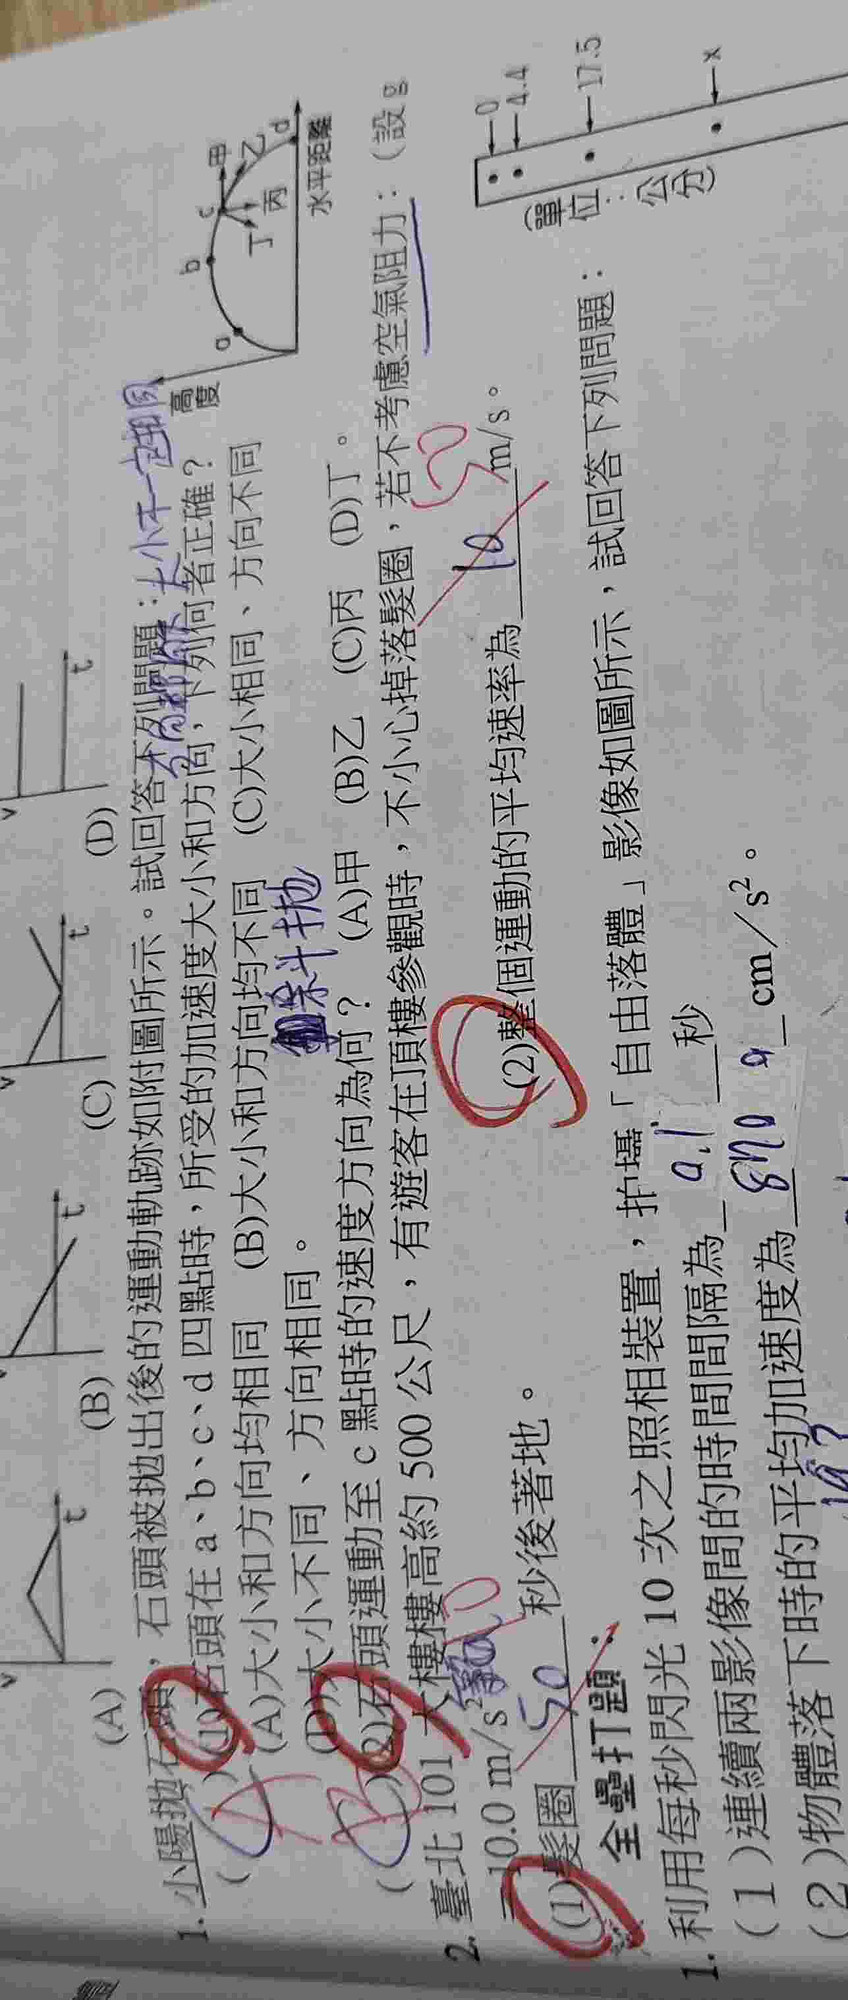 v t v t v t v t
(A) (B) (C) (D)
1. 小陽拋石頭,石頭被拋出後的運動軌跡如附圖所示。試回答下列問題:
大小不一定相同
A
( )(1)石頭在 a、b、c、d 四點時,所受的加速度大小和方向,下列何者正確?
(A)大小和方向均相同 (B)大小和方向均不同 (C)大小相同、方向不同
(D)大小不同、方向相同。
斜拋
B
( )(2)石頭運動至 c 點時的速度方向為何? (A)甲 (B)乙 (C)丙 (D)丁。
高度
a
b
c
d
甲
乙
丙
丁
水平距離
2. 臺北 101 大樓樓高約 500 公尺,有遊客在頂樓參觀時,不小心掉落髮圈,若不考慮空氣阻力:(設 g
=10.0 m/s²)
(1)髮圈 50 秒後著地。 (2)整個運動的平均速率為 10 m/s。
10
50
全壘打題:
1. 利用每秒閃光 10 次之照相裝置,拍攝「自由落體」影像如圖所示,試回答下列問題:
(1)連續兩影像間的時間間隔為 0.1 秒
(2)物體落下時的平均加速度為 870 cm/s²。
0
4.4
17.5
x
(單位:公分)